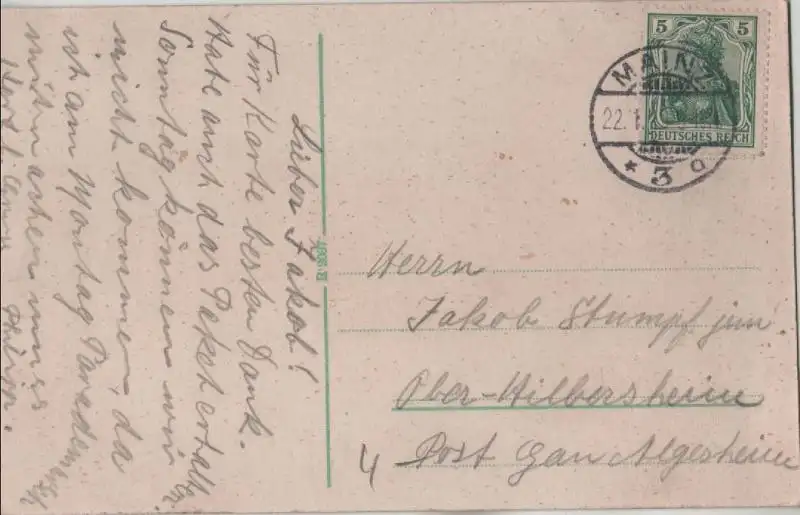 Lieber Jakob!
Für Karte besten Dank.
Habe auch das Paket erhalt
Sonntag können wir
nicht kommen, da
ist am Montag Parade
mitmachen muss
Philipp.
5 5
DEUTSCHES REICH
MAINZ
22.1
* 3
R 2087
Herrn
Jakob Stumpf jun.
Ober-Hilbersheim
Post Gau Algesheim
4